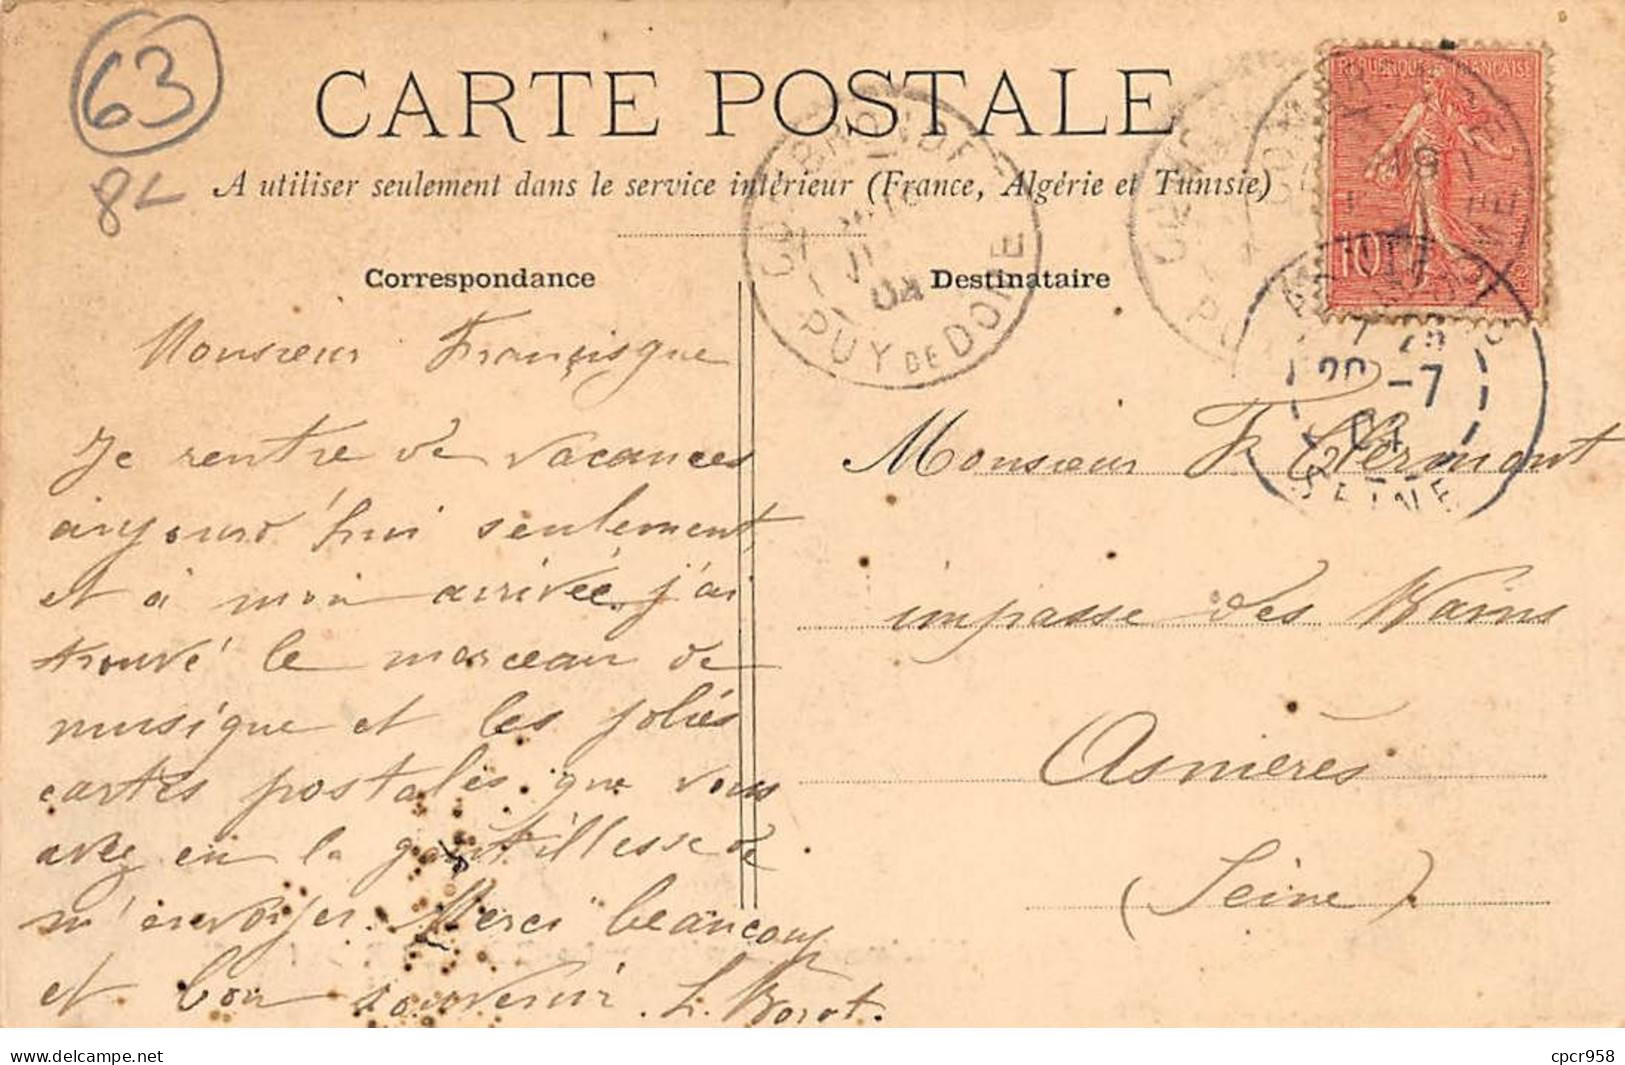 63
8L
CARTE POSTALE
A utiliser seulement dans le service intérieur (France, Algérie et Tunisie)
Correspondance
Destinataire
COMBRONDE
PUY DE DOME
REPUBLIQUE FRANÇAISE
10
ASNIERES
20 -7
04
SEINE
Monsieur Francisque
Je rentre de vacances
aujourd'hui seulement
et à mon arrivée, j'ai
trouvé le morceau de
musique et les jolies
cartes postales que vous
avez eu la gentillesse de
m'envoyer. Merci beaucoup
et bon souvenir. L. Borot.
Monsieur F. Clermont
impasse des Bains
Asnières
(Seine).
www.delcampe.net
cpcr958